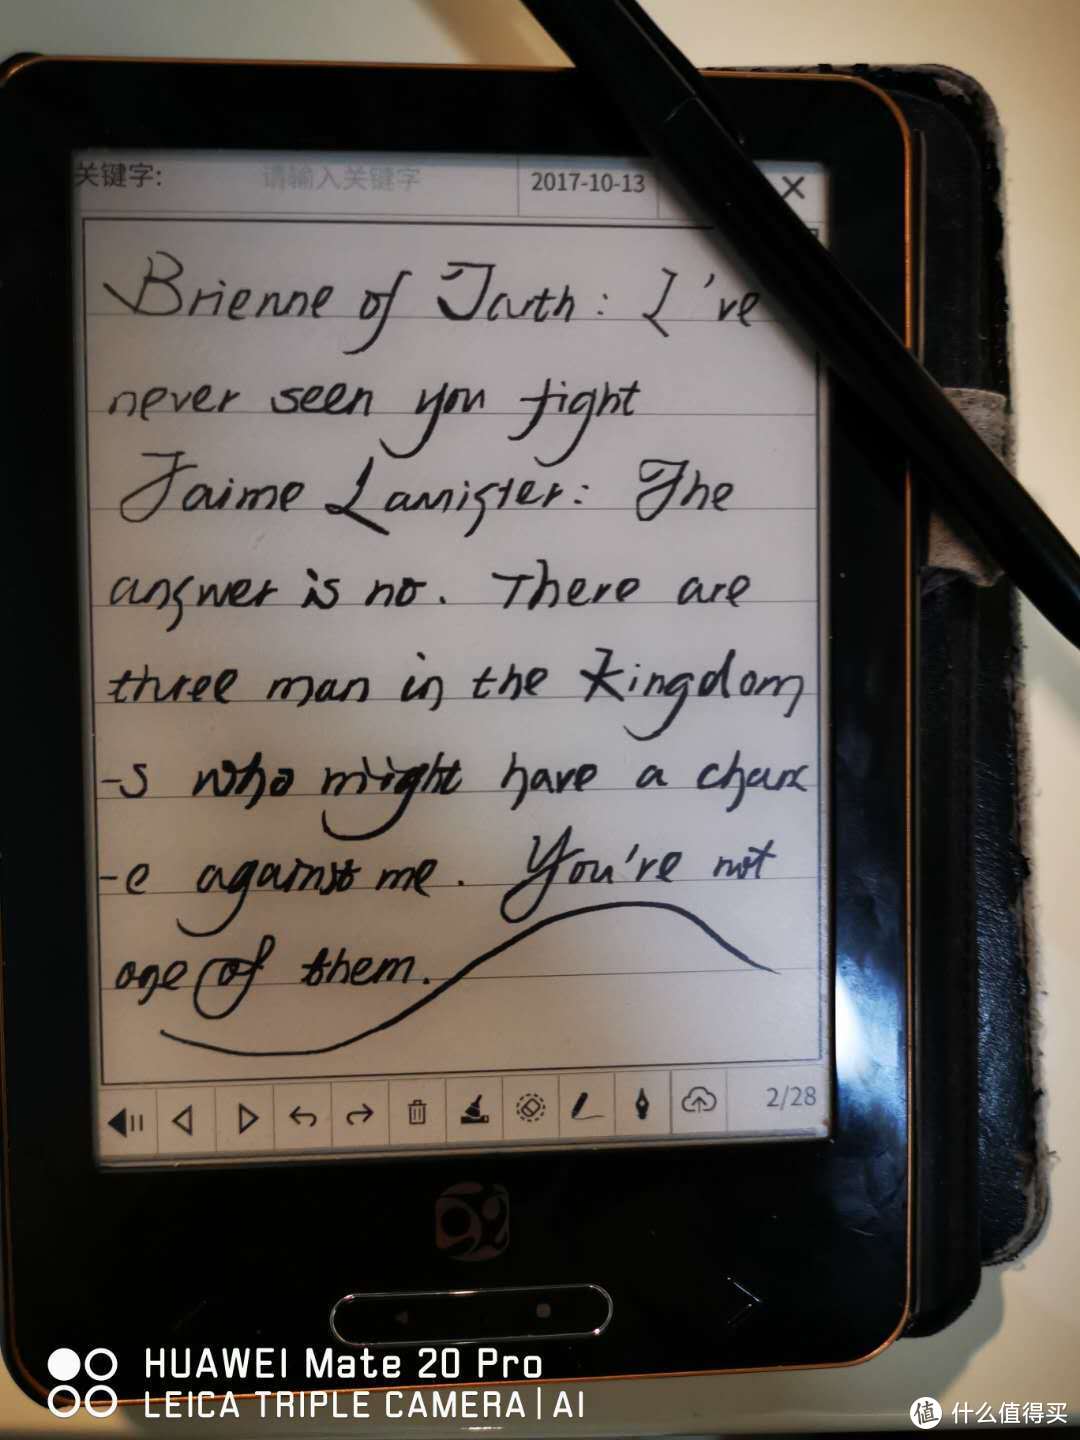 关键字: 请输入关键字 2017-10-13 ×
Brienne of Tarth: I've
never seen you fight
Jaime Lannister: The
answer is no. There are
three man in the Kingdom
-s who might have a chanc
-e against me. You're not
one of them.
2/28
HUAWEI Mate 20 Pro
LEICA TRIPLE CAMERA | AI
值 什么值得买